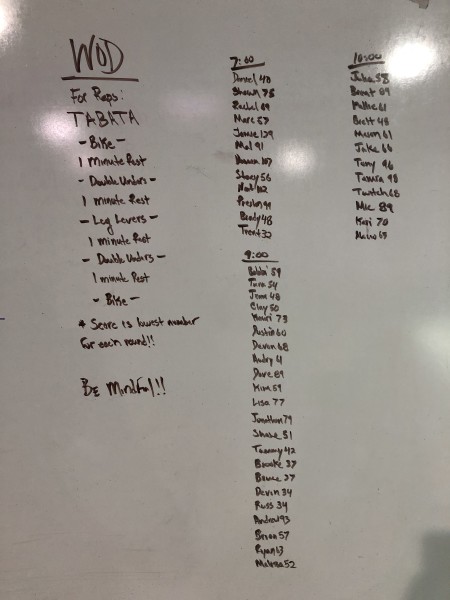 WOD
For Reps:
TABATA
- Bike -
1 minute Rest
- Double Unders -
1 minute Rest
- Leg Levers -
1 minute Rest
- Double Unders -
1 minute Rest
- Bike -
* Score is lowest number
for each round!!
Be Mindful!!
7:00
Daniel 40
Shawn 75
Rachel 89
Marc 57
Jamie 129
Mal 91
107
Stacy 56
Nat 102
Preston 99
Brady 48
Trent 32
9:00
59
Tara 54
Jenn 48
Clay 50
73
Dustin 60
Devon 68
Andry 4
Dave 89
Kim 59
Lisa 77
Jonathon 79
Shane 51
Tammy 42
Brooke 37
Bruce 27
Devin 34
Russ 34
Andrew 93
Brian 57
Ryan 63
Melissa 52
10:00
58
Brent 89
61
Brett 48
61
Jake 66
Tony 96
Tamara 98
Twitch 68
Mic 89
Kari 70
65